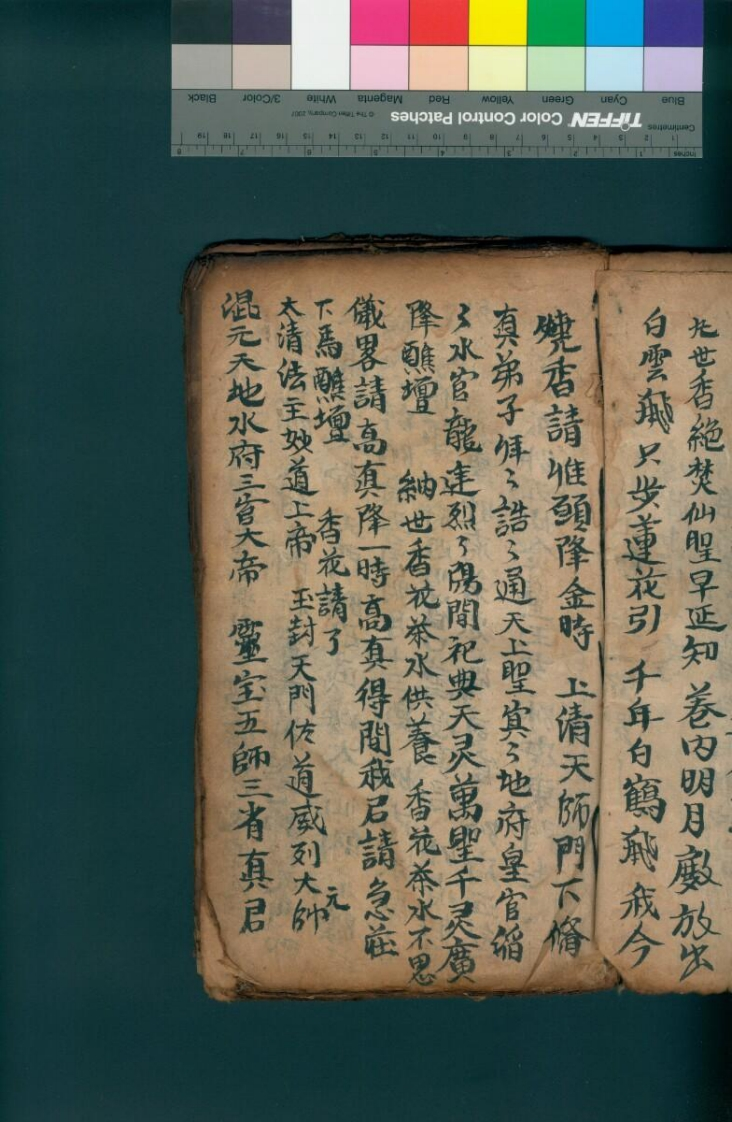 Blue Cyan Green Yellow Red Magenta White 3/Color Black
TIFFEN Color Control Patches © The Tiffen Company, 2007
Centimetres 1 2 3 4 5 6 7 8 9 10 11 12 13 14 15 16 17 18 19
Inches
世香絶焚仙聖早延知 卷内明月廒放出
白雲飛只步蓮花引 千年白鶴飛 我今
燒香請惟願降金時 上清天師門下脩
真弟子拜〻誥〻通天上聖冥〻地府皇官
〻水官龍逹烈〻陽間祀典天灵萬聖千灵廣
降醮壇 納世香花茶水供養 香花茶水不思
儀畧請高真降一時高真得聞我启請急莊
下馬醮壇 香花請了 元
太清法主妙道上帝 玉封天門佐道威列大帥
混元天地水府三官大帝 靈宝五師三省真君